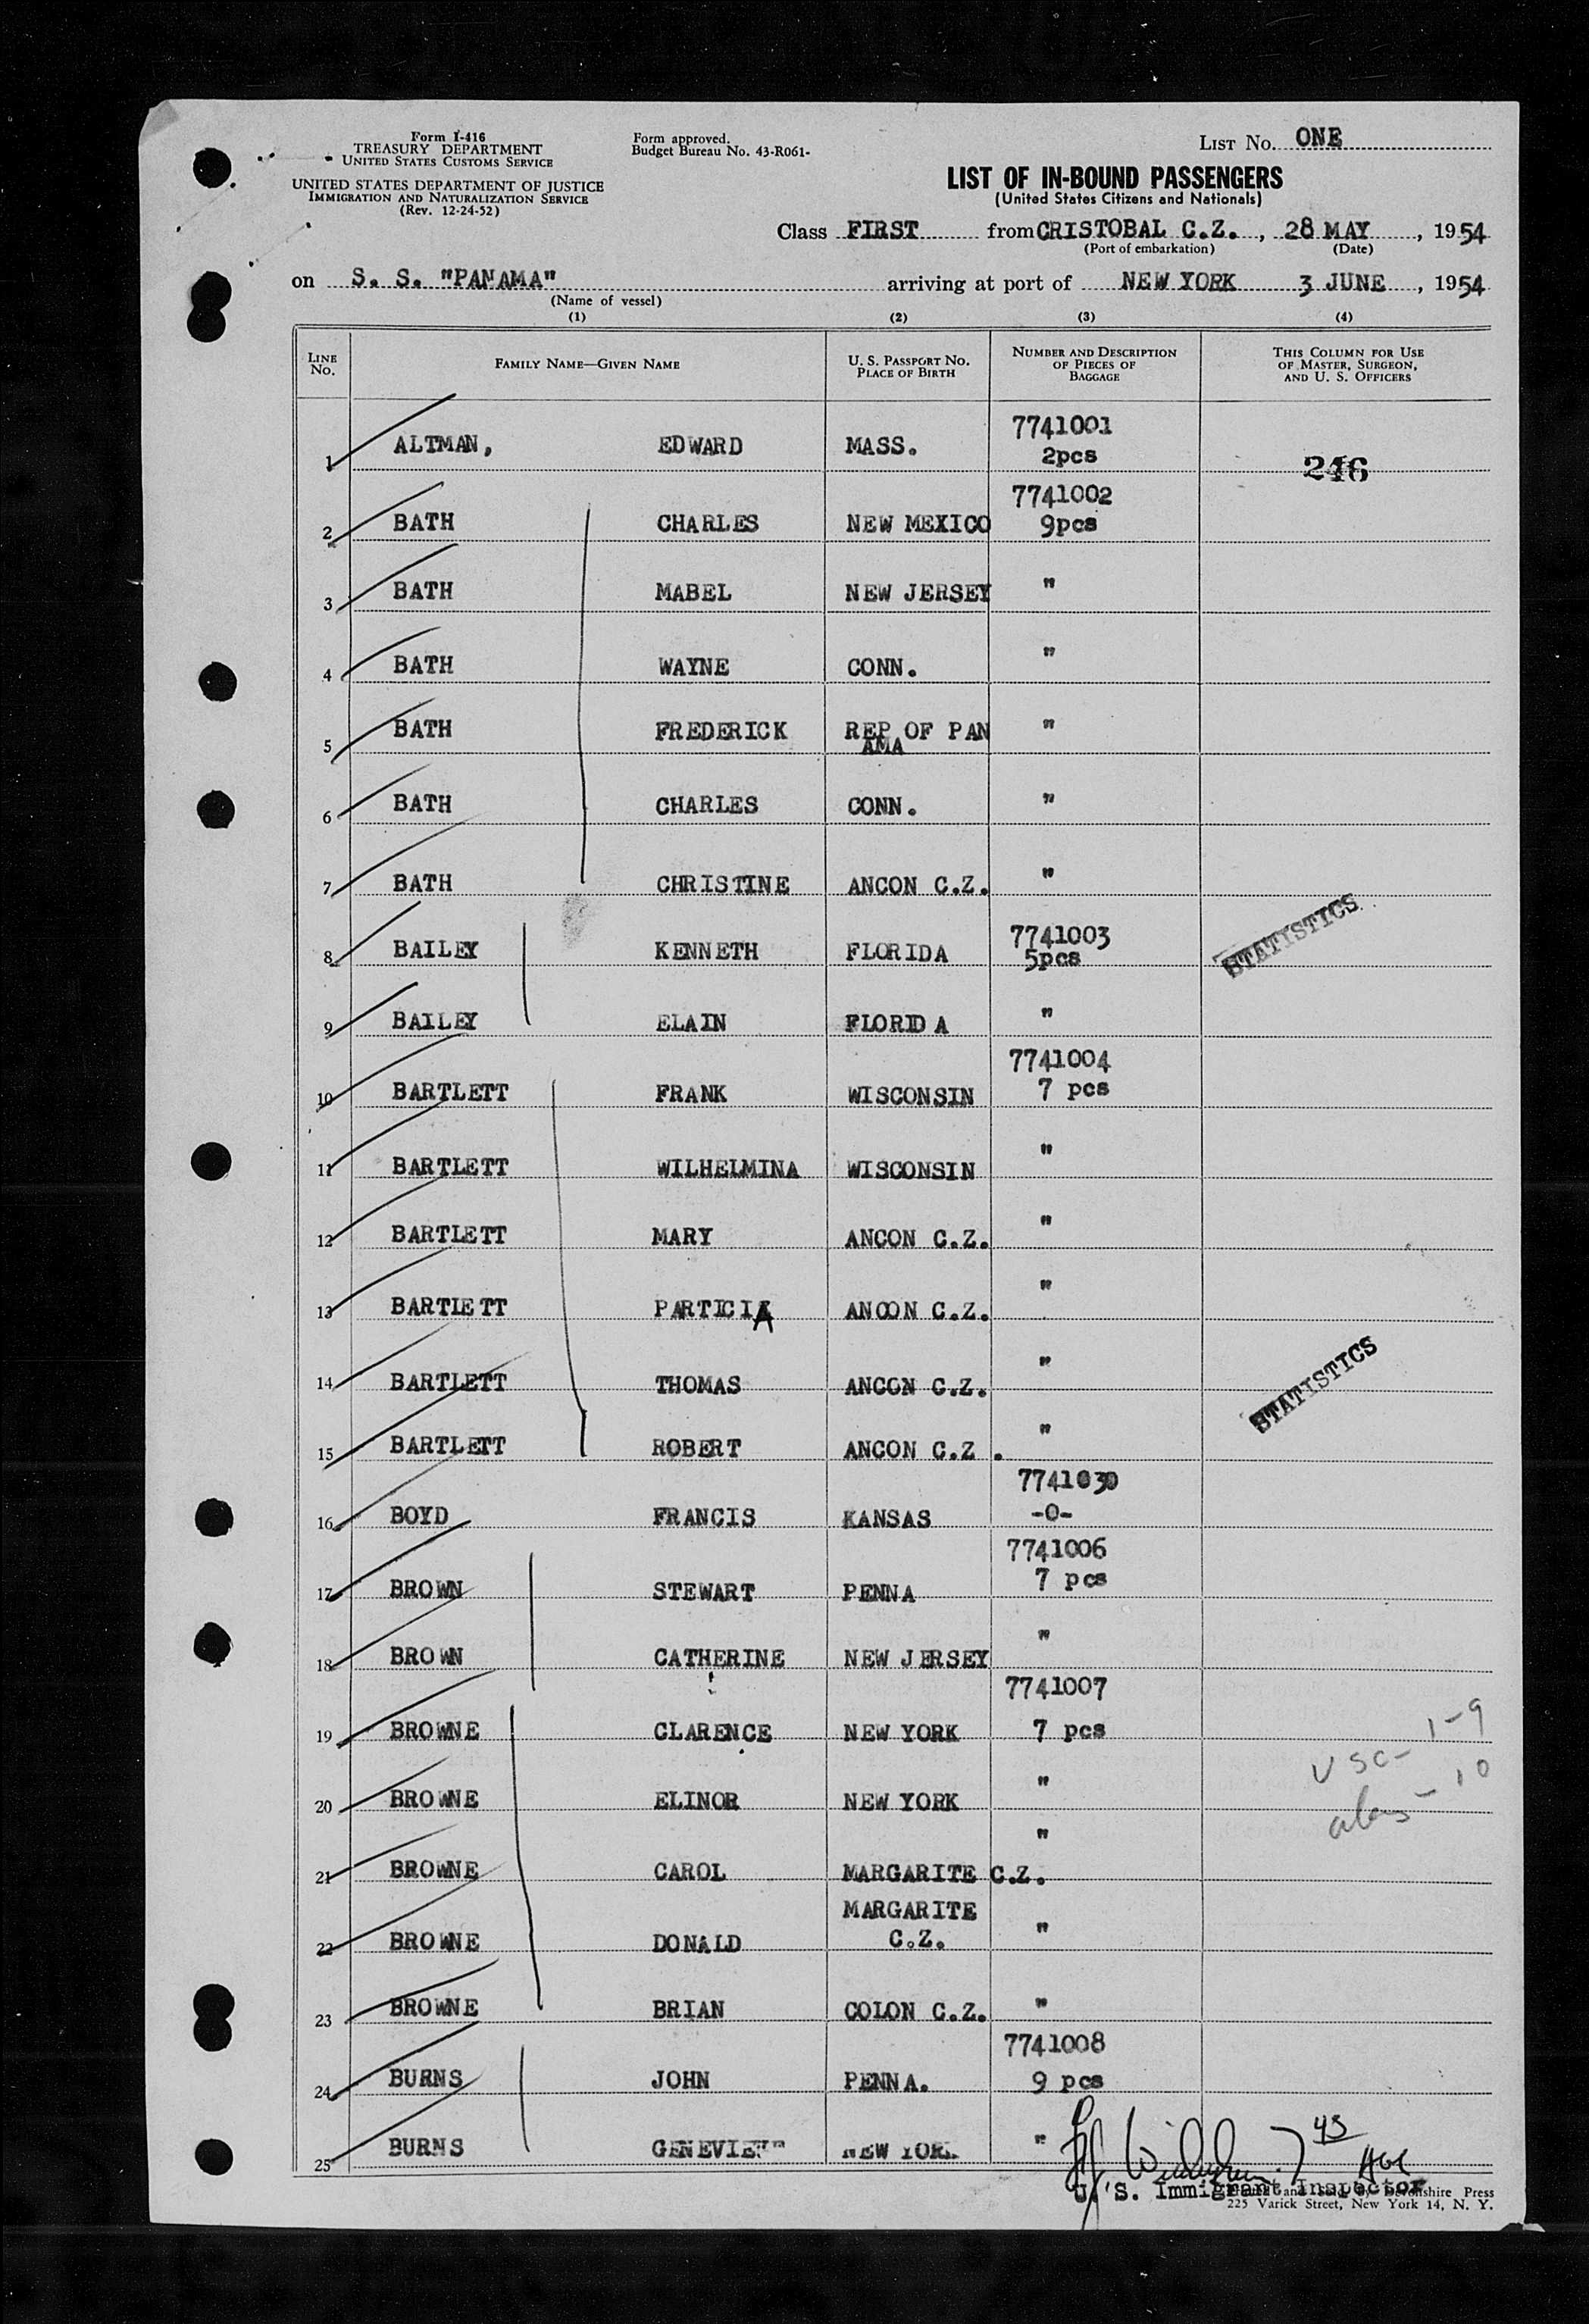 Form I-416
TREASURY DEPARTMENT
UNITED STATES CUSTOMS SERVICE
UNITED STATES DEPARTMENT OF JUSTICE
IMMIGRATION AND NATURALIZATION SERVICE
(Rev. 12-24-52)
Form approved.
Budget Bureau No. 43-R061-
LIST NO. ONE
LIST OF IN-BOUND PASSENGERS
(United States Citizens and Nationals)
Class FIRST from CRISTOBAL C.Z., 28 MAY, 1954
(Port of embarkation) (Date)
on S. S. "PANAMA" arriving at port of NEW YORK 3 JUNE, 1954
(Name of vessel)
(1) (2) (3) (4)
LINE NO. FAMILY NAME—GIVEN NAME U. S. PASSPORT NO. PLACE OF BIRTH NUMBER AND DESCRIPTION OF PIECES OF BAGGAGE THIS COLUMN FOR USE OF MASTER, SURGEON, AND U. S. OFFICERS
1 ALTMAN, EDWARD MASS. 7741001 2pcs 246
2 BATH CHARLES NEW MEXICO 7741002 9pcs
3 BATH MABEL NEW JERSEY "
4 BATH WAYNE CONN. "
5 BATH FREDERICK REP OF PANAMA "
6 BATH CHARLES CONN. "
7 BATH CHRISTINE ANCON C.Z. "
8 BAILEY KENNETH FLORIDA 7741003 5pcs STATISTICS
9 BAILEY ELAIN FLORIDA "
10 BARTLETT FRANK WISCONSIN 7741004 7 pcs
11 BARTLETT WILHELMINA WISCONSIN "
12 BARTLETT MARY ANCON C.Z. "
13 BARTLETT PARTICIA ANCON C.Z. "
14 BARTLETT THOMAS ANCON C.Z. " STATISTICS
15 BARTLETT ROBERT ANCON C.Z. "
16 BOYD FRANCIS KANSAS 7741030 -0-
17 BROWN STEWART PENNA 7741006 7 pcs
18 BROWN CATHERINE NEW JERSEY "
19 BROWNE CLARENCE NEW YORK 7741007 7 pcs USC- 1-9
20 BROWNE ELINOR NEW YORK " - 10
21 BROWNE CAROL MARGARITE C.Z. "
22 BROWNE DONALD MARGARITE C.Z. "
23 BROWNE BRIAN COLON C.Z. "
24 BURNS JOHN PENNA. 7741008 9 pcs
25 BURNS GENEVIEVE NEW YORK "
U. S. Immigrant Inspector
225 Varick Street, New York 14, N. Y.